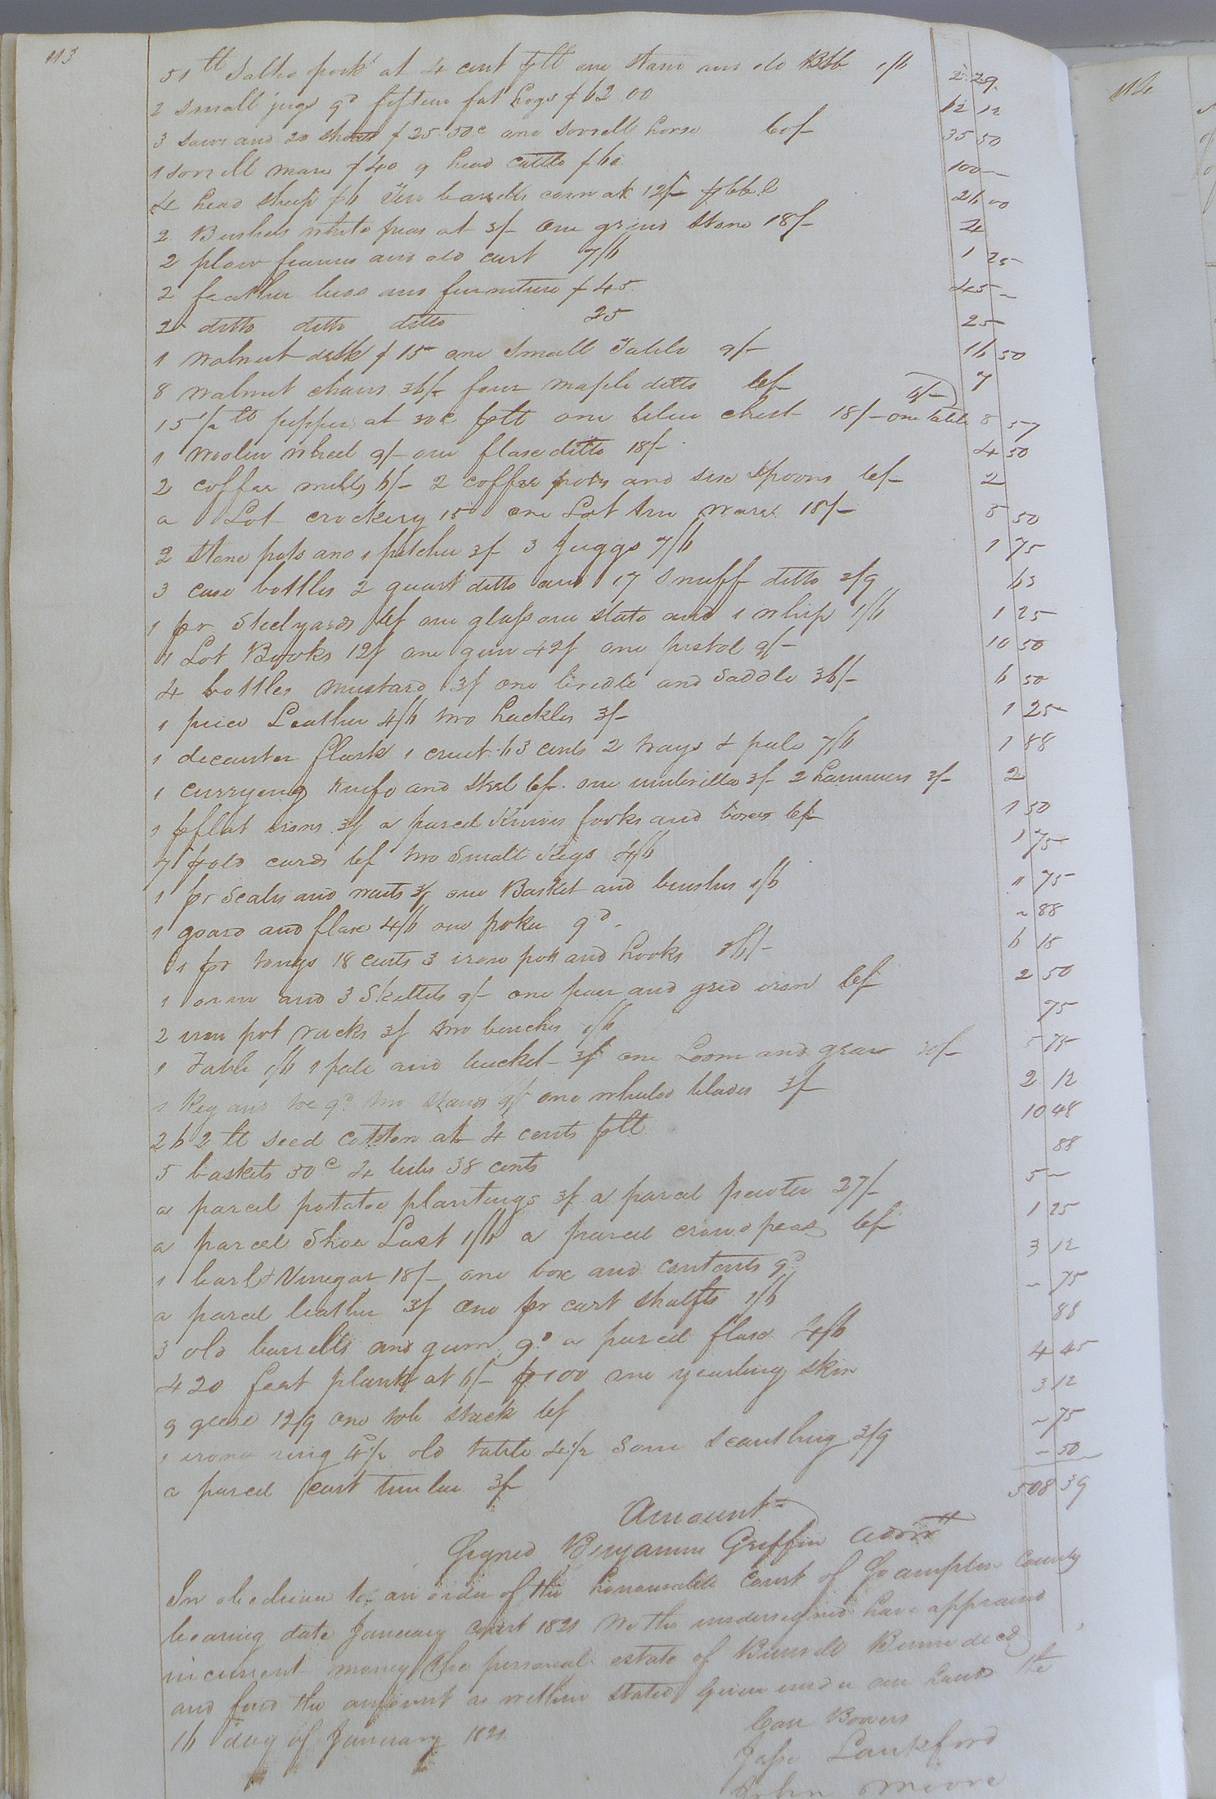 113
51 lb Salted pork at 4 cent plb one Stand and old Bbl 1/6 2 29
2 small jugs 9d fifteen fat hogs $62 00 62 12
3 sows and 20 shoats $25.50c one Sorrell horse 60/- 35 50
1 sorrell mare $40 9 head cattle $60 100 —
4 head sheep $6 Ten barrells corn at 12/- pbbl 26 00
2 Bushels white peas at 3/- One grind Stone 18/- 4
2 plow frames and old cart 7/6 1 25
2 feather beds and furniture $45 45 —
2 ditto ditto ditto 25 25
1 Walnut desk $15 one Small Table 9/- 16 50
8 walnut chairs 36/- four maple ditto 6/- 7
15 1/2 lb pepper at 30c plb one blue chest 18/- one table 8 57
1 woolen wheel 9/- one flax ditto 18/- 4 50
2 coffee mills 6/- 2 coffee pots and six Spoons 6/- 2
a Lot crockery 150 one Lot tin ware 18/- 50
2 Stone pots and 1 pitcher 3/ 3 Juggs 7/6 1 75
3 case bottles 2 quart ditto and 17 Snuff ditto 3/9 63
1 pr Steelyards 6/ one glass one slate and 1 whip 1/6 1 25
1 Lot Books 12/ one gun 42/ one pistol 9/- 10 50
4 bottles mustard 3/ one bridle and Saddle 36/- 6 50
1 piece Leather 4/6 two hackles 3/- 1 25
1 decanter flask 1 cruet 63 cents 2 trays & pale 7/6 1 88
1 currying knife and Steel 6/- one umbrella 3/- 2 hammers 3/- 2
1 p flat irons 3/ a parcel Knives forks and boxes 6/- 1 50
7 p old cards 6/ two Small Kegs 4/6 1 75
1 pr Scales and waits 3/ one Basket and brushes 1/6 " 75
1 goard and flax 4/6 one poker 9d - ~ 88
1 pr tongs 18 cents 3 iron pots and hooks 36/- 6 18
1 oven and 3 Skillets 9/- one pan and grid iron 6/ 2 50
2 iron pot racks 3/ two benches 1/6 75
1 Table 1/6 1 pale and bucket 3/ one Loom and gear 30/- 5 75
1 Keg and 9d two Stands 9/ one wheelo blades 3/ 2 12
262 lb seed cotton at 4 cents plb 10 48
5 baskets 50c 4 38 cents 88
a parcel potatoe plantings 3/ a parcel pewter 27/- 5 —
a parcel Shoe Last 1/6 a parcel crowd peas 6/ 1 25
1 barl Vinegar 18/- one box and contents 9d 3 12
a parcel leather 3/ one pr cart Shafts 1/6 ~ 75
3 old barrells and gum 9d a parcel flax 4/6 88
420 feet plank at 6/- p100 one yearling skin 4 45
9 geese 12/9 one stack 6/ 3 12
1 ring 4 1/2 old table 4 1/2 Some Scantling 3/9 ~ 75
a parcel cart timber 3/ — 50
Amount 508 39
Signed Benjamin Griffin admr
In obedience to an order of the honourable Court of Soampton County
bearing date January Court 1821 We the undersigned have appraised
in current money the personal estate of Decd
and find the amount as within stated given under our hands the
16 day of January 1821
Carr Bowers
Jesse Lankford
John Moore